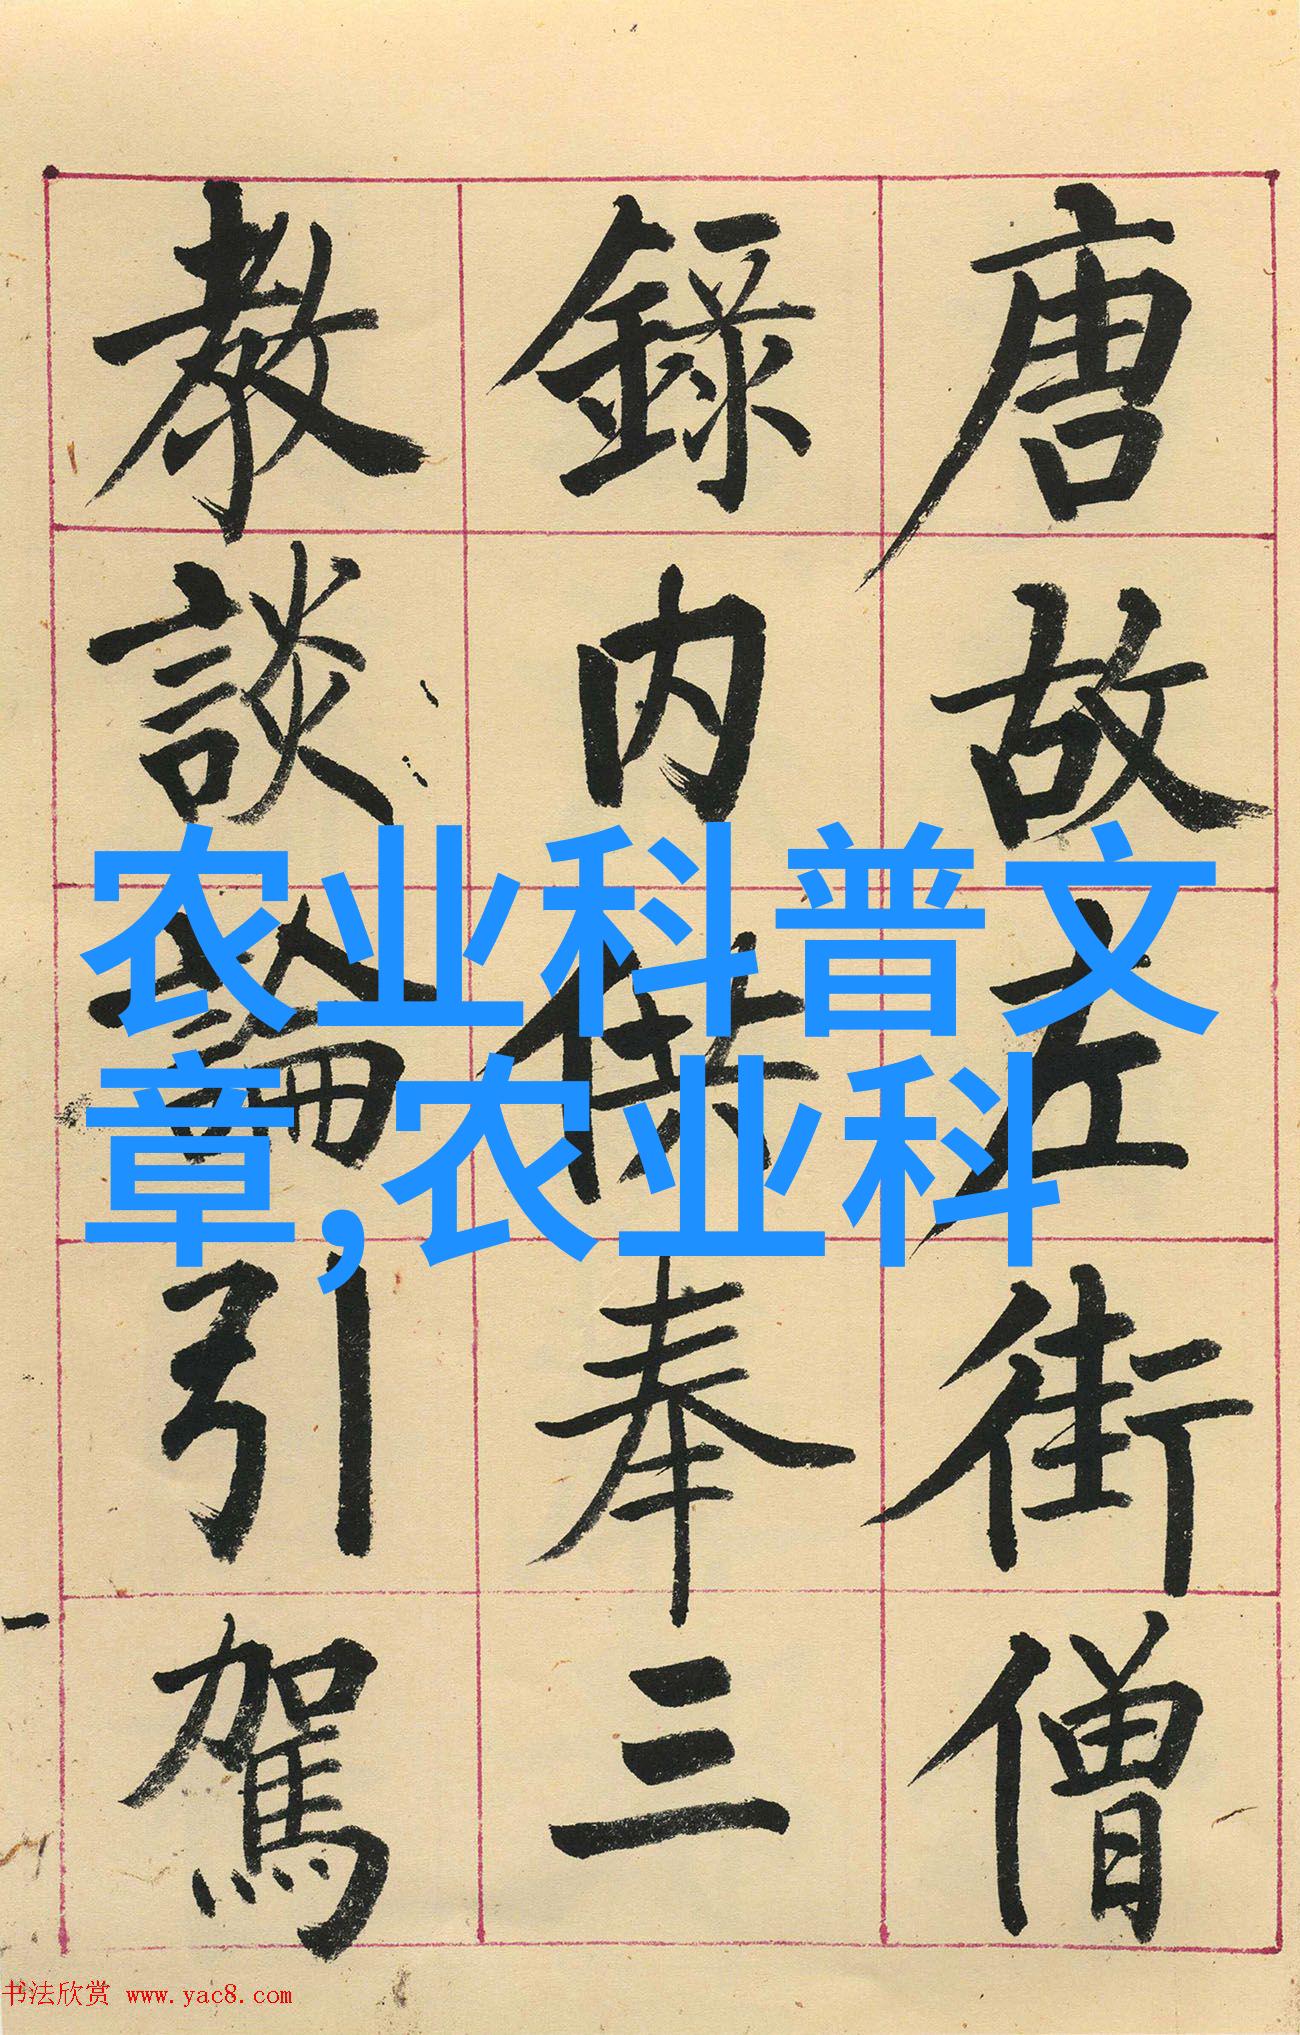 唐故左街僧
錄内供奉三
教談論引駕
农业科普文
章,农业科
书法欣赏 www.yac8.com